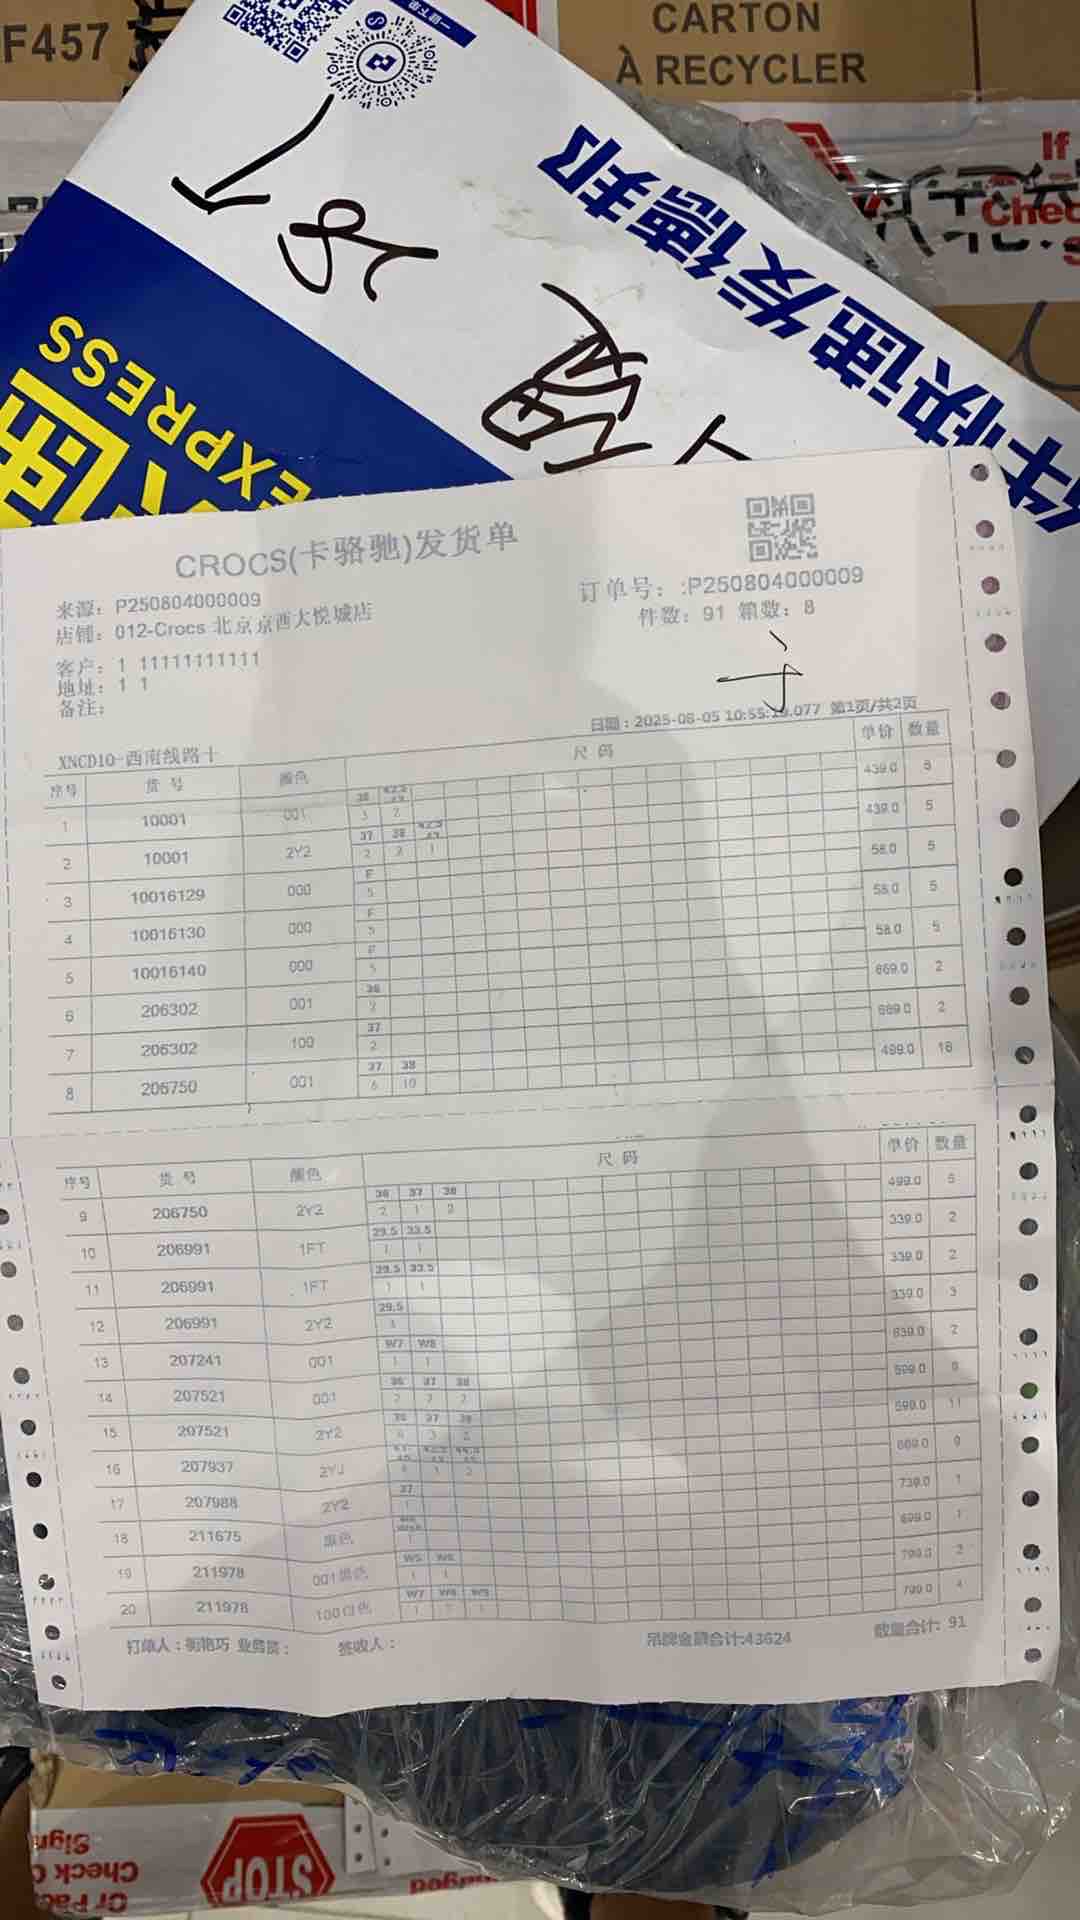 F457
CARTON
À RECYCLER
If
Chec
件快递发德邦
EXPRESS
CROCS(卡骆驰)发货单
来源：P250804000009
订单号：:P250804000009
店铺：012-Crocs 北京京西大悦城店
件数：91 箱数：8
客户：1 11111111111
地址：1 1
备注：
日期：2025-08-05 10:55:19.077 第1页/共2页
XNCD10-西南线路十
序号 货号 颜色 尺码 单价 数量
38 42.5
1 10001 001 3 2 439.0 5
37 38 42.5
2 10001 2Y2 2 2 1 439.0 5
F
3 10016129 000 5 58.0 5
F
4 10016130 000 5 58.0 5
F
5 10016140 000 5 58.0 5
36
6 206302 001 2 669.0 2
37
7 206302 100 2 669.0 2
37 38
8 206750 001 6 10 499.0 16
序号 货号 颜色 尺码 单价 数量
36 37 38
9 206750 2Y2 2 1 2 499.0 5
29.5 33.5
10 206991 1FT 1 1 339.0 2
29.5 33.5
11 206991 1FT 1 1 339.0 2
29.5
12 206991 2Y2 3 339.0 3
W7 W8
13 207241 001 1 1 639.0 2
36 37 38
14 207521 001 2 2 2 599.0 6
36 37 38
15 207521 2Y2 6 3 2 599.0 11
16 207937 2YJ 669.0 9
37
17 207988 2Y2 1 739.0 1
18 211675 黑色 1 699.0 1
W5 W6
19 211978 001黑色 1 1 799.0 2
W7 W8 W9
20 211978 100白色 1 2 1 799.0 4
打单人：衡艳巧 业务员： 签收人： 吊牌金额合计:43624 数量合计: 91
Sign
Check
Or Pac
STOP